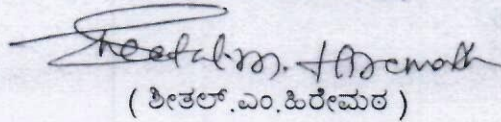 Sheetal.m. Hiremath
( ಶೀತಲ್.ಎಂ.ಹಿರೇಮಠ )